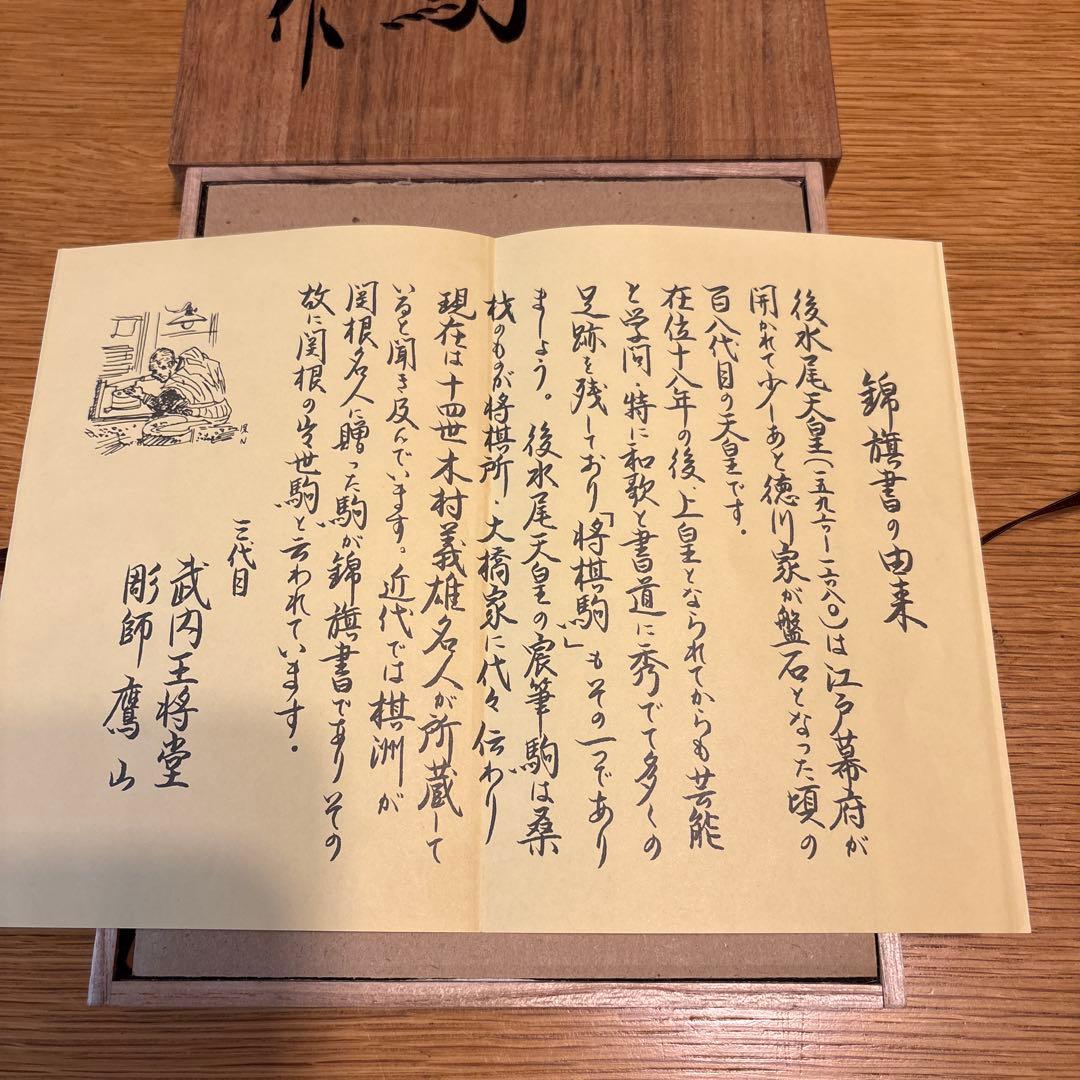 駒
作
錦旗書の由来
後水尾天皇(一五九六〜一六八〇)は江戸幕府が
開かれて少しあと徳川家が盤石となった頃の
百八代目の天皇です。
在位十八年の後、上皇となられてからも芸能
と学問・特に和歌と書道に秀でて多くの
足跡を残しており「将棋駒」もその一つであり
ましょう。後水尾天皇の宸筆駒は桑
材のものが将棋所・大橋家に代々伝わり
現在は十四世木村義雄名人が所蔵して
いると聞き及んでいます。近代では棋洲が
関根名人に贈った駒が錦旗書でありその
故に関根の出世駒と云われています。
三代目
武内王将堂
彫師 鷹山